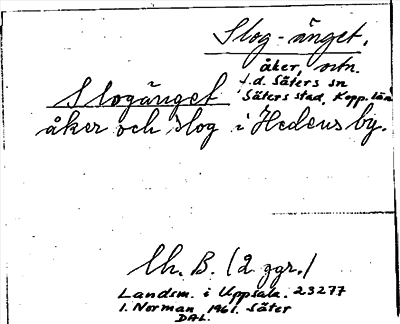 Slog-änget.
åker, ortn.
f.d. Säters sn
Slogänget Säters stad, Kopp. län
åker och slog i Hedens by.
lh. B. (2 ggr.)
Landsm. i Uppsala. 23277
I. Norman 1961. Säter
DAL.